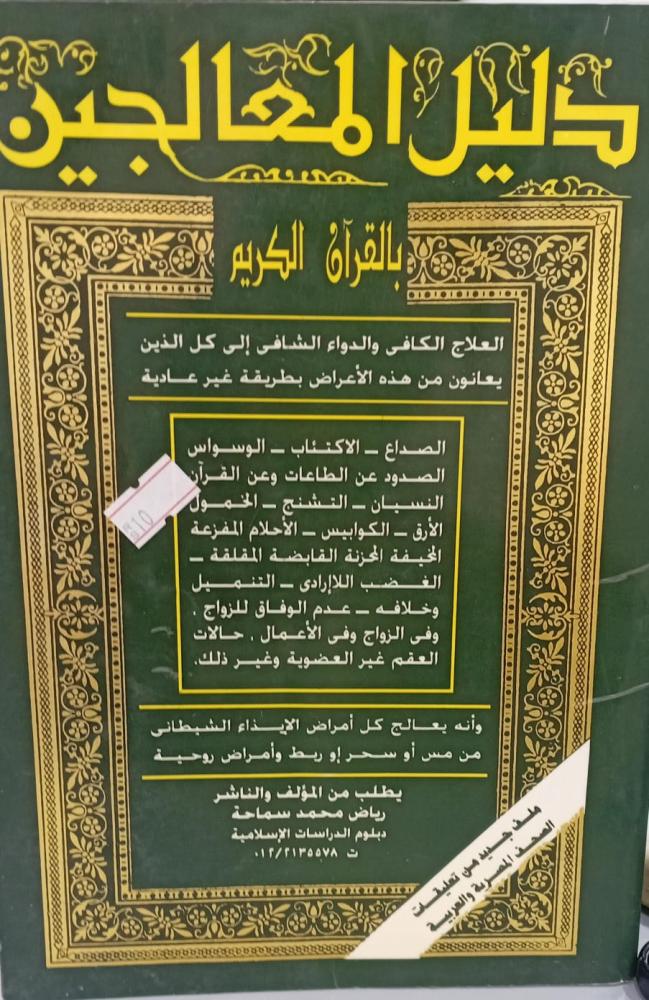 دليل المعالجين
بالقرآن الكريم
العلاج الكافى والدواء الشافى إلى كل الذين
يعانون من هذه الأعراض بطريقة غير عادية
الصداع ــ الاكتئاب ــ الوسواس
الصدود عن الطاعات وعن القرآن
النسيان ــ التشنج ــ الخمول
الأرق ــ الكوابيس ــ الأحلام المفزعة
المخيفة المحزنة القابضة المقلقة ــ
الغضب اللاإرادى ــ التنميل
وخلافه ــ عدم الوفاق للزواج ,
وفى الزواج وفى الأعمال , حالات
العقم غير العضوية وغير ذلك.
10
وأنه يعالج كل أمراض الإيذاء الشيطانى
من مس أو سحر إو ربط وأمراض روحية
يطلب من المؤلف والناشر
رياض محمد سماحة
دبلوم الدراسات الإسلامية
ت ٠١٢/٢١٣٥٥٧٨
ملف جديد من تعليقات
الصحف المصرية والعربية